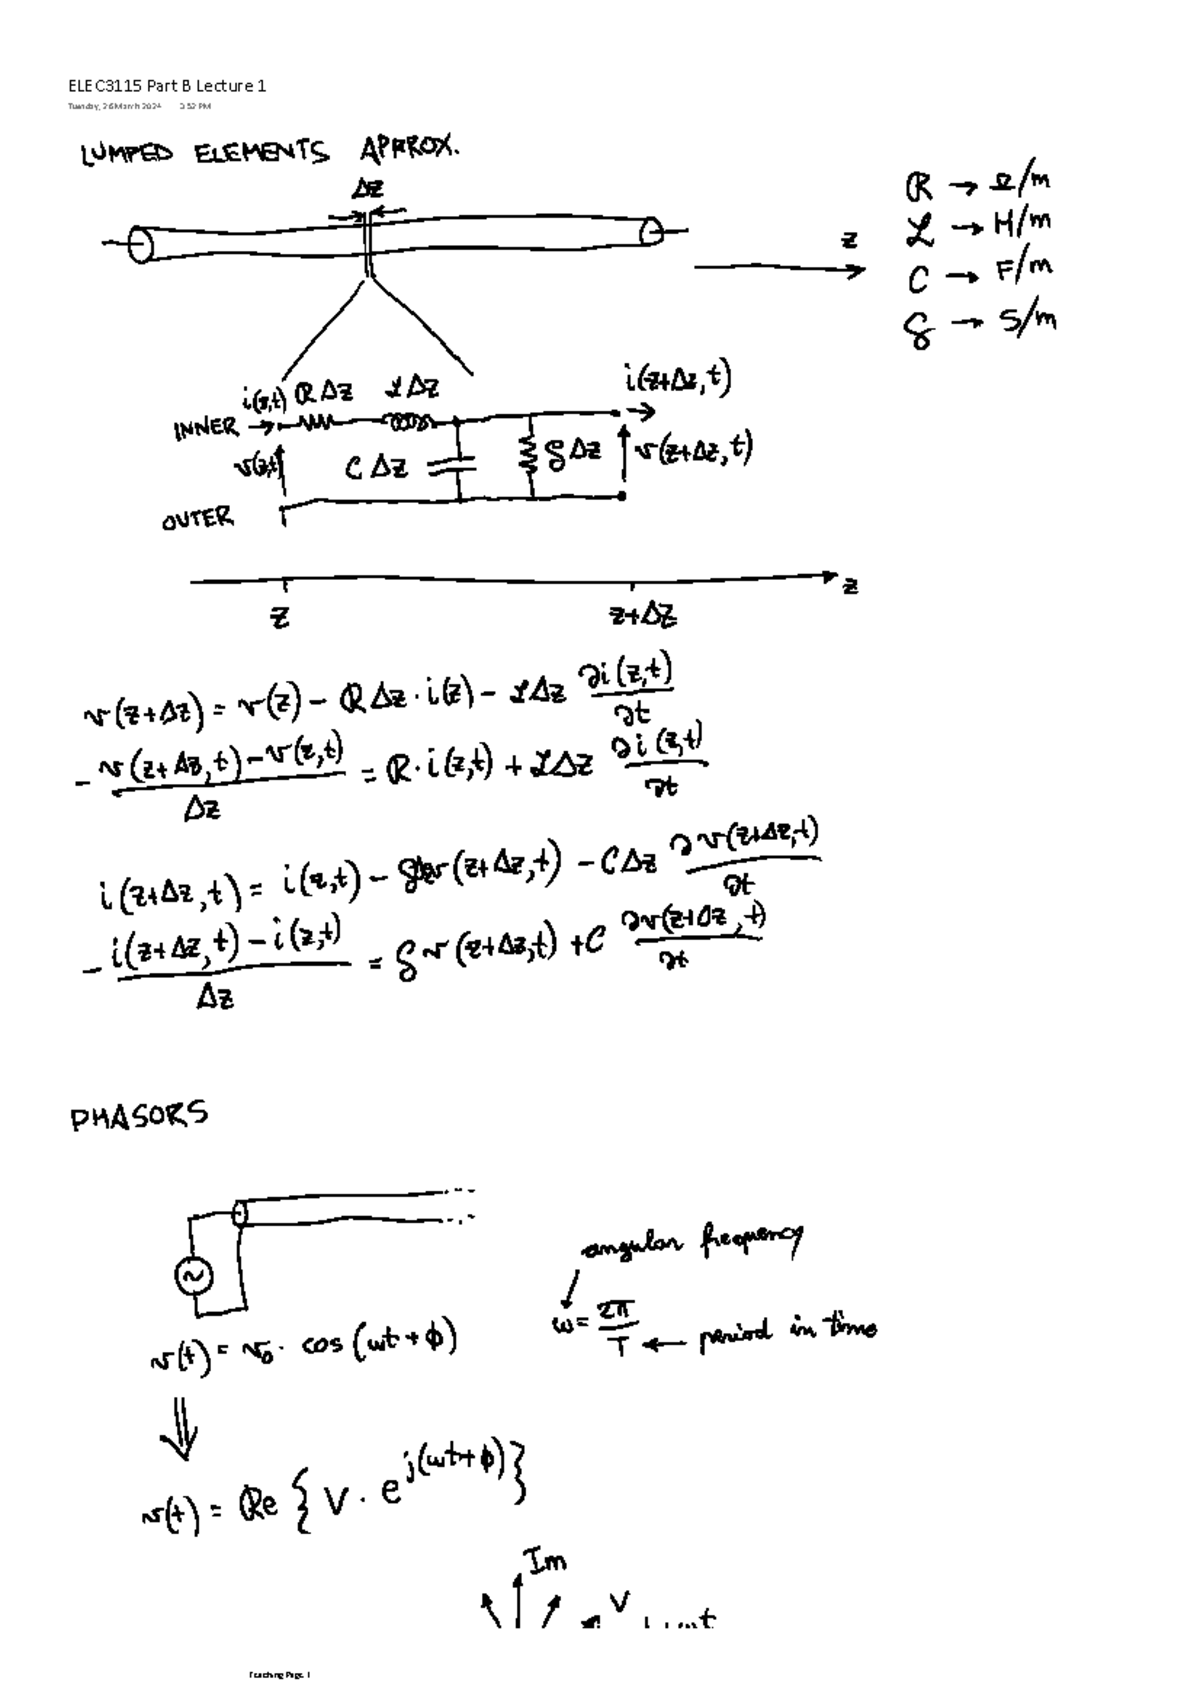 ELEC3115 Part B Lecture 1
Tuesday, 26 March 2024 3:52 PM
LUMPED ELEMENTS APPROX.
Δz
R → Ω/m
L → H/m
C → F/m
G → S/m
z
i(z,t) RΔz LΔz i(z+Δz,t)
INNER
v(z,t) CΔz GΔz v(z+Δz,t)
OUTER
z
z z+Δz
v(z+Δz) = v(z) - RΔz · i(z) - LΔz ∂i(z,t)/∂t
- (v(z+Δz,t) - v(z,t))/Δz = R · i(z,t) + LΔz ∂i(z,t)/∂t
i(z+Δz,t) = i(z,t) - v(z+Δz,t) - CΔz ∂v(z+Δz,t)/∂t
- (i(z+Δz,t) - i(z,t))/Δz = G v(z+Δz,t) + C ∂v(z+Δz,t)/∂t
PHASORS
~
angular frequency
ω = 2π/T ← period in time
v(t) = v₀ · cos(ωt + ϕ)
v(t) = Re { V · e^j(ωt+ϕ) }
Im
V
Teaching Page 1